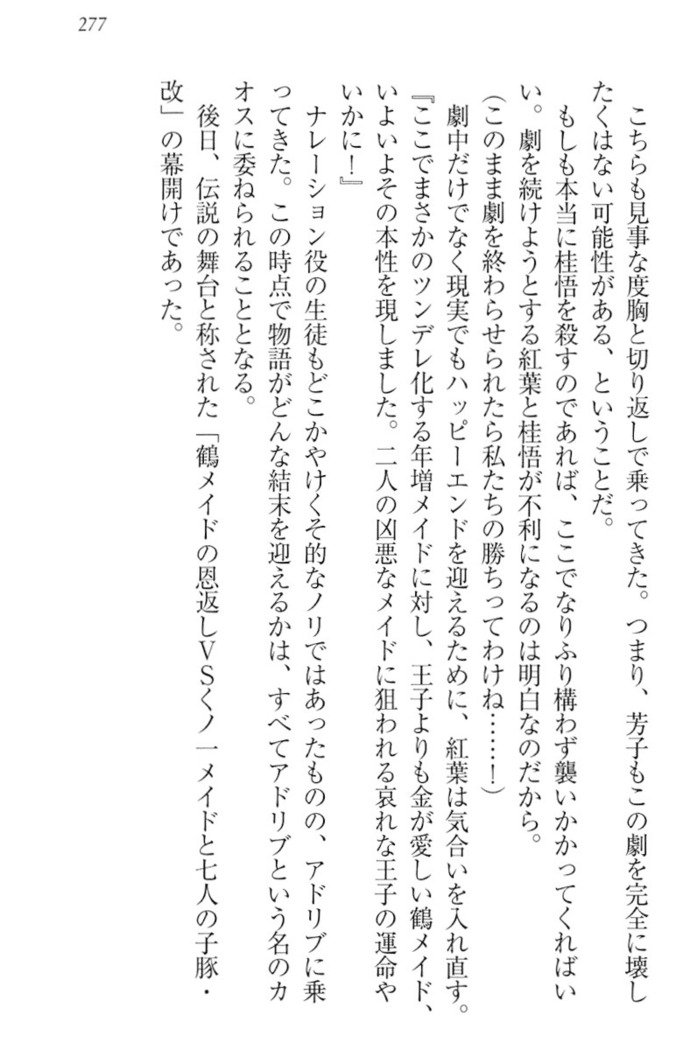 277
こちらも見事な度胸と切り返しで乗ってきた。つまり、芳子もこの劇を完全に壊し
たくはない可能性がある、ということだ。
もしも本当に桂悟を殺すのであれば、ここでなりふり構わず襲いかかってくればい
い。劇を続けようとする紅葉と桂悟が不利になるのは明白なのだから。
(このまま劇を終わらせられたら私たちの勝ちってわけね……!)
劇中だけでなく現実でもハッピーエンドを迎えるために、紅葉は気合いを入れ直す。
『ここでまさかのツンデレ化する年増メイドに対し、王子よりも金が愛しい鶴メイド、
いよいよその本性を現しました。二人の凶悪なメイドに狙われる哀れな王子の運命や
いかに!』
ナレーション役の生徒もどこかやけくそ的なノリではあったものの、アドリブに乗
ってきた。この時点で物語がどんな結末を迎えるかは、すべてアドリブという名のカ
オスに委ねられることとなる。
後日、伝説の舞台と称された「鶴メイドの恩返しVSくノ一メイドと七人の子豚・
改」の幕開けであった。